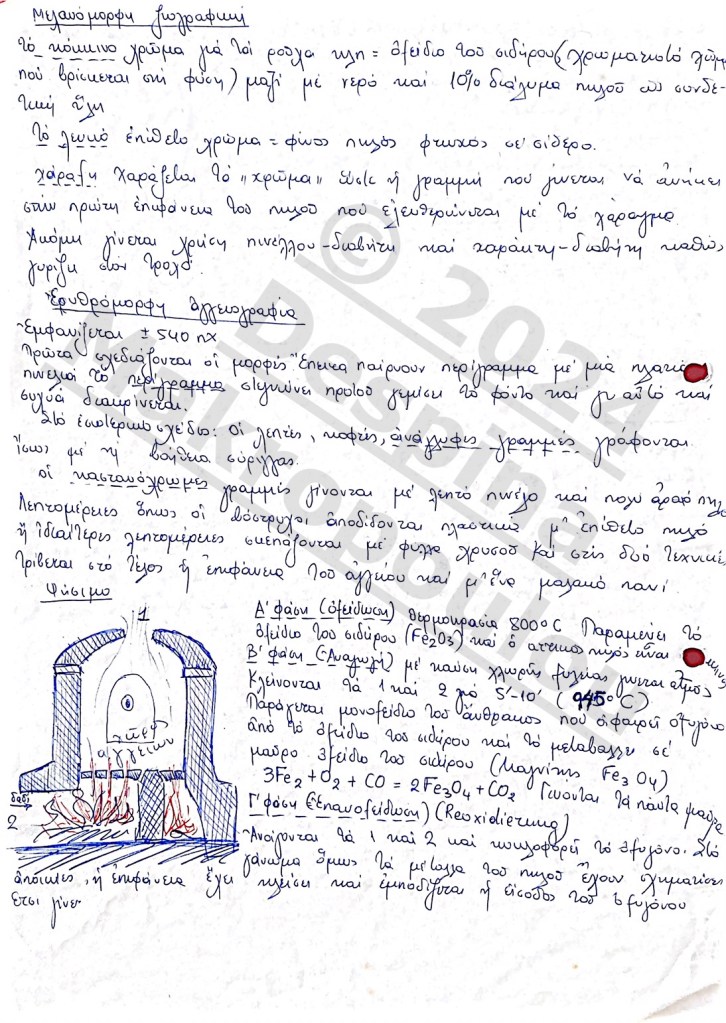 Μελανόμορφη ζωγραφική
Τὸ κόκκινο χρῶμα γιὰ τὰ ροῦχα κλπ = ὀξείδιο τοῦ σιδήρου (χρωματιστὸ χῶμα
ποὺ βρίσκεται στὴ φύση) μαζὶ μὲ νερὸ καὶ 10% διάλυμα πηλοῦ ὡς συνδε-
τικὴ ὕλη
Τὸ λευκὸ ἐπίθετο χρῶμα = φίνος πηλὸς φτωχὸς σὲ σίδερο.
χάραξη Χαράζεται τὸ "χρῶμα" ὥστε ἡ γραμμὴ ποὺ γίνεται νὰ ἀνήκει
στὴν πρώτη ἐπιφάνεια τοῦ πηλοῦ ποὺ ἐλευθερώνεται μὲ τὸ χάραγμα
Ἀκόμη γίνεται χρήση πινέλλου-διαβήτη καὶ χαράκτη-διαβήτη καθὼς
γυρίζει στὸν τροχό.
Ἐρυθρόμορφη ἀγγειογραφία
Ἐμφανίζεται ± 540 πΧ
Πρῶτα σχεδιάζονται οἱ μορφές. Ἔπειτα παίρνουν περίγραμμα μὲ μιὰ πλατιὰ
πινελιὰ τὸ περίγραμμα στεγνώνει προτοῦ γεμίσει τὸ φόντο καὶ γι αὐτὸ καὶ
συχνὰ διακρίνεται.
Στὸ ἐσωτερικὸ σχέδιο: Οἱ λεπτές, καφές, ἀνάγλυφες γραμμὲς γράφονται
ἴσως μὲ τὴ βοήθεια σύριγγας.
Οἱ καστανόχρωμες γραμμὲς γίνονται μὲ λεπτὸ πινέλο καὶ πολὺ ἀραιὸ πηλό
Λεπτομέρειες ὅπως οἱ βόστρυχοι ἀποδίδονται πλαστικὰ μ' ἐπίθετο πηλό
ἢ ἰδιαίτερες λεπτομέρειες σκεπάζονται μὲ φύλλα χρυσοῦ καὶ στὶς δυὸ τεχνικές
τρίβεται στὸ τέλος ἡ ἐπιφάνεια τοῦ ἀγγείου καὶ μ' ἕνα μαλακὸ πανί
Ψήσιμο
1
χῶρος
ἀγγείων
δαδί
2
Α' φάση (ὀξείδωση) θερμοκρασία 800°C Παραμένει τὸ
ὀξείδιο τοῦ σιδήρου (Fe2O3) καὶ ὁ ἀττικὸς πηλὸς εἶναι
Β' φάση (Ἀναγωγὴ) μὲ καύση χλωρῆς ξυλείας γίνεται ἀτμός
Κλείνονται τὰ 1 καὶ 2 γιὰ 5'-10' (945°C)
Παράγεται μονοξείδιο τοῦ ἄνθρακος ποὺ ἀφαιρεῖ ὀξυγόνο
ἀπὸ τὸ ὀξείδιο τοῦ σιδήρου καὶ τὸ μεταβάλλει σὲ
μαῦρο ὀξείδιο τοῦ σιδήρου (Μαγνίτης Fe3O4)
3Fe2+O2+CO = 2Fe3O4+CO2 Γίνονται τὰ πάντα μαῦρα
Γ' φάση (Ἐπανοξείδωση) (Reoxidierung)
Ἀνοίγονται τὰ 1 καὶ 2 καὶ κυκλοφορεῖ τὸ ὀξυγόνο. Στὸ
γάνωμα ὅμως τὰ μέταλλα τοῦ πηλοῦ ἔχουν σχηματίσει
ἀποικίες, ἡ ἐπιφάνεια ἔχει κλείσει καὶ ἐμποδίζεται ἡ εἴσοδος τοῦ ὀξυγόνου
Ἔτσι γίνε
© 2024
Despina
Makropoulou